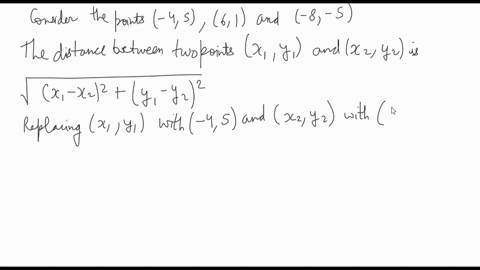 Consider the points (-4,5), (6,1) and (-8,-5)
The distance between two points (x₁, y₁) and (x₂, y₂) is
√(x₁-x₂)² + (y₁-y₂)²
Replacing (x₁, y₁) with (-4,5) and (x₂, y₂) with (